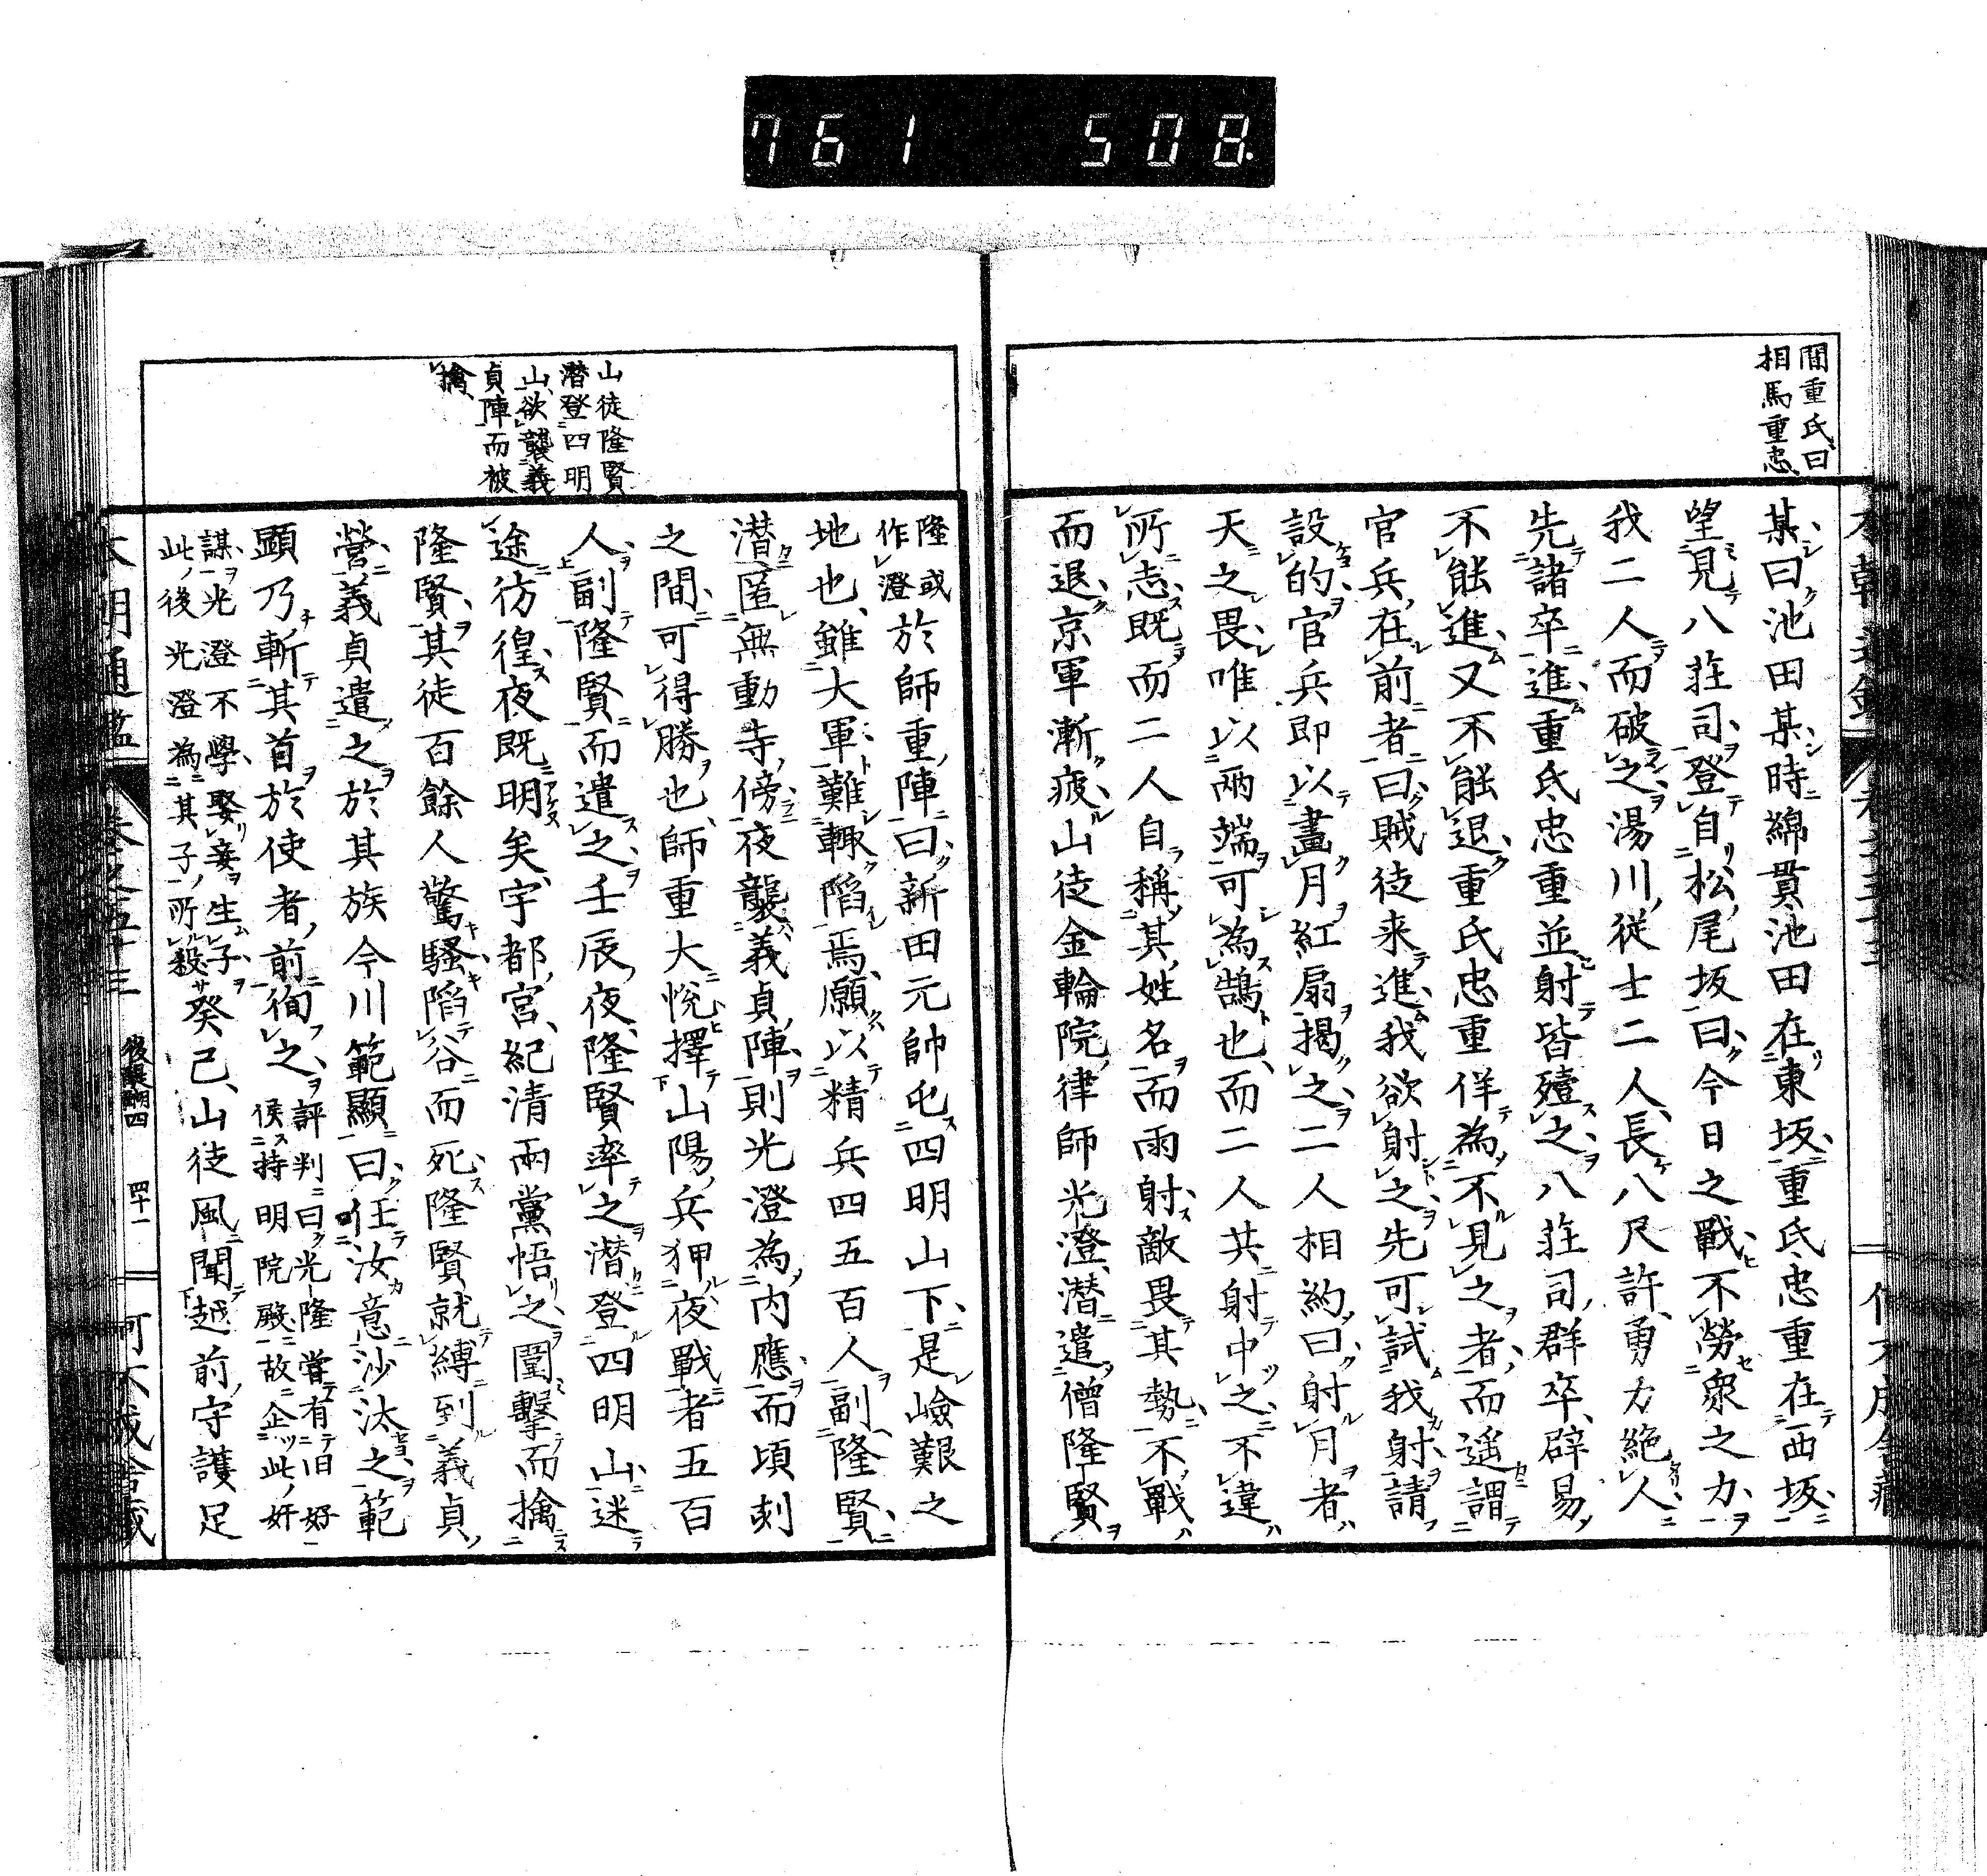 761 508.
間重氏、曰
相馬重忠、
某曰池田某時綿貫池田在東坂重氏忠重在西坂
望見八荘司登自松尾坂曰今日之戰不勞衆之力
我二人而破之湯川從士二人長八尺許勇力絶人
先諸卒進重氏忠重並射皆殪之八荘司群卒辟易
不能進又不能退重氏忠重佯為不見之者而遥謂
官兵在前者曰賊徒来進我欲射之先可試我射請
設的官兵即以畫月紅扇揭之二人相約曰射月者
天之畏唯以兩端可為鵠也而二人共射中之不違
所志既而二人自稱其姓名而雨射敵畏其勢不戰
而退京軍漸疲山徒金輪院律師光澄潜遣僧隆賢
山徒隆賢
潜登四明
山欲襲義
貞陣而被
擒
隆或
作澄
於師重陣曰新田元帥屯四明山下是嶮艱之
地也雖大軍難輙陷焉願以精兵四五百人副隆賢
潜匿無動寺傍夜襲義貞陣則光澄為内應而頃刻
之間可得勝也師重大悅擇山陽兵狎夜戰者五百
人副隆賢而遣之壬辰夜隆賢率之潜登四明山迷
途彷徨夜既明矣宇都宮紀清兩黨悟之圍擊而擒
隆賢其徒百餘人驚騷陷谷而死隆賢就縛到義貞
營義貞遣之於其族今川範顯曰任汝意沙汰之範
顯乃斬其首於使者前徇之
評判曰光隆嘗有旧好
侯持明院殿故企此奸
謀光澄不學娶妾生子
此後光澄為其子所殺
癸巳山徒風聞越前守護足
本朝通鑑 卷之五十三 後醍醐四 四十一